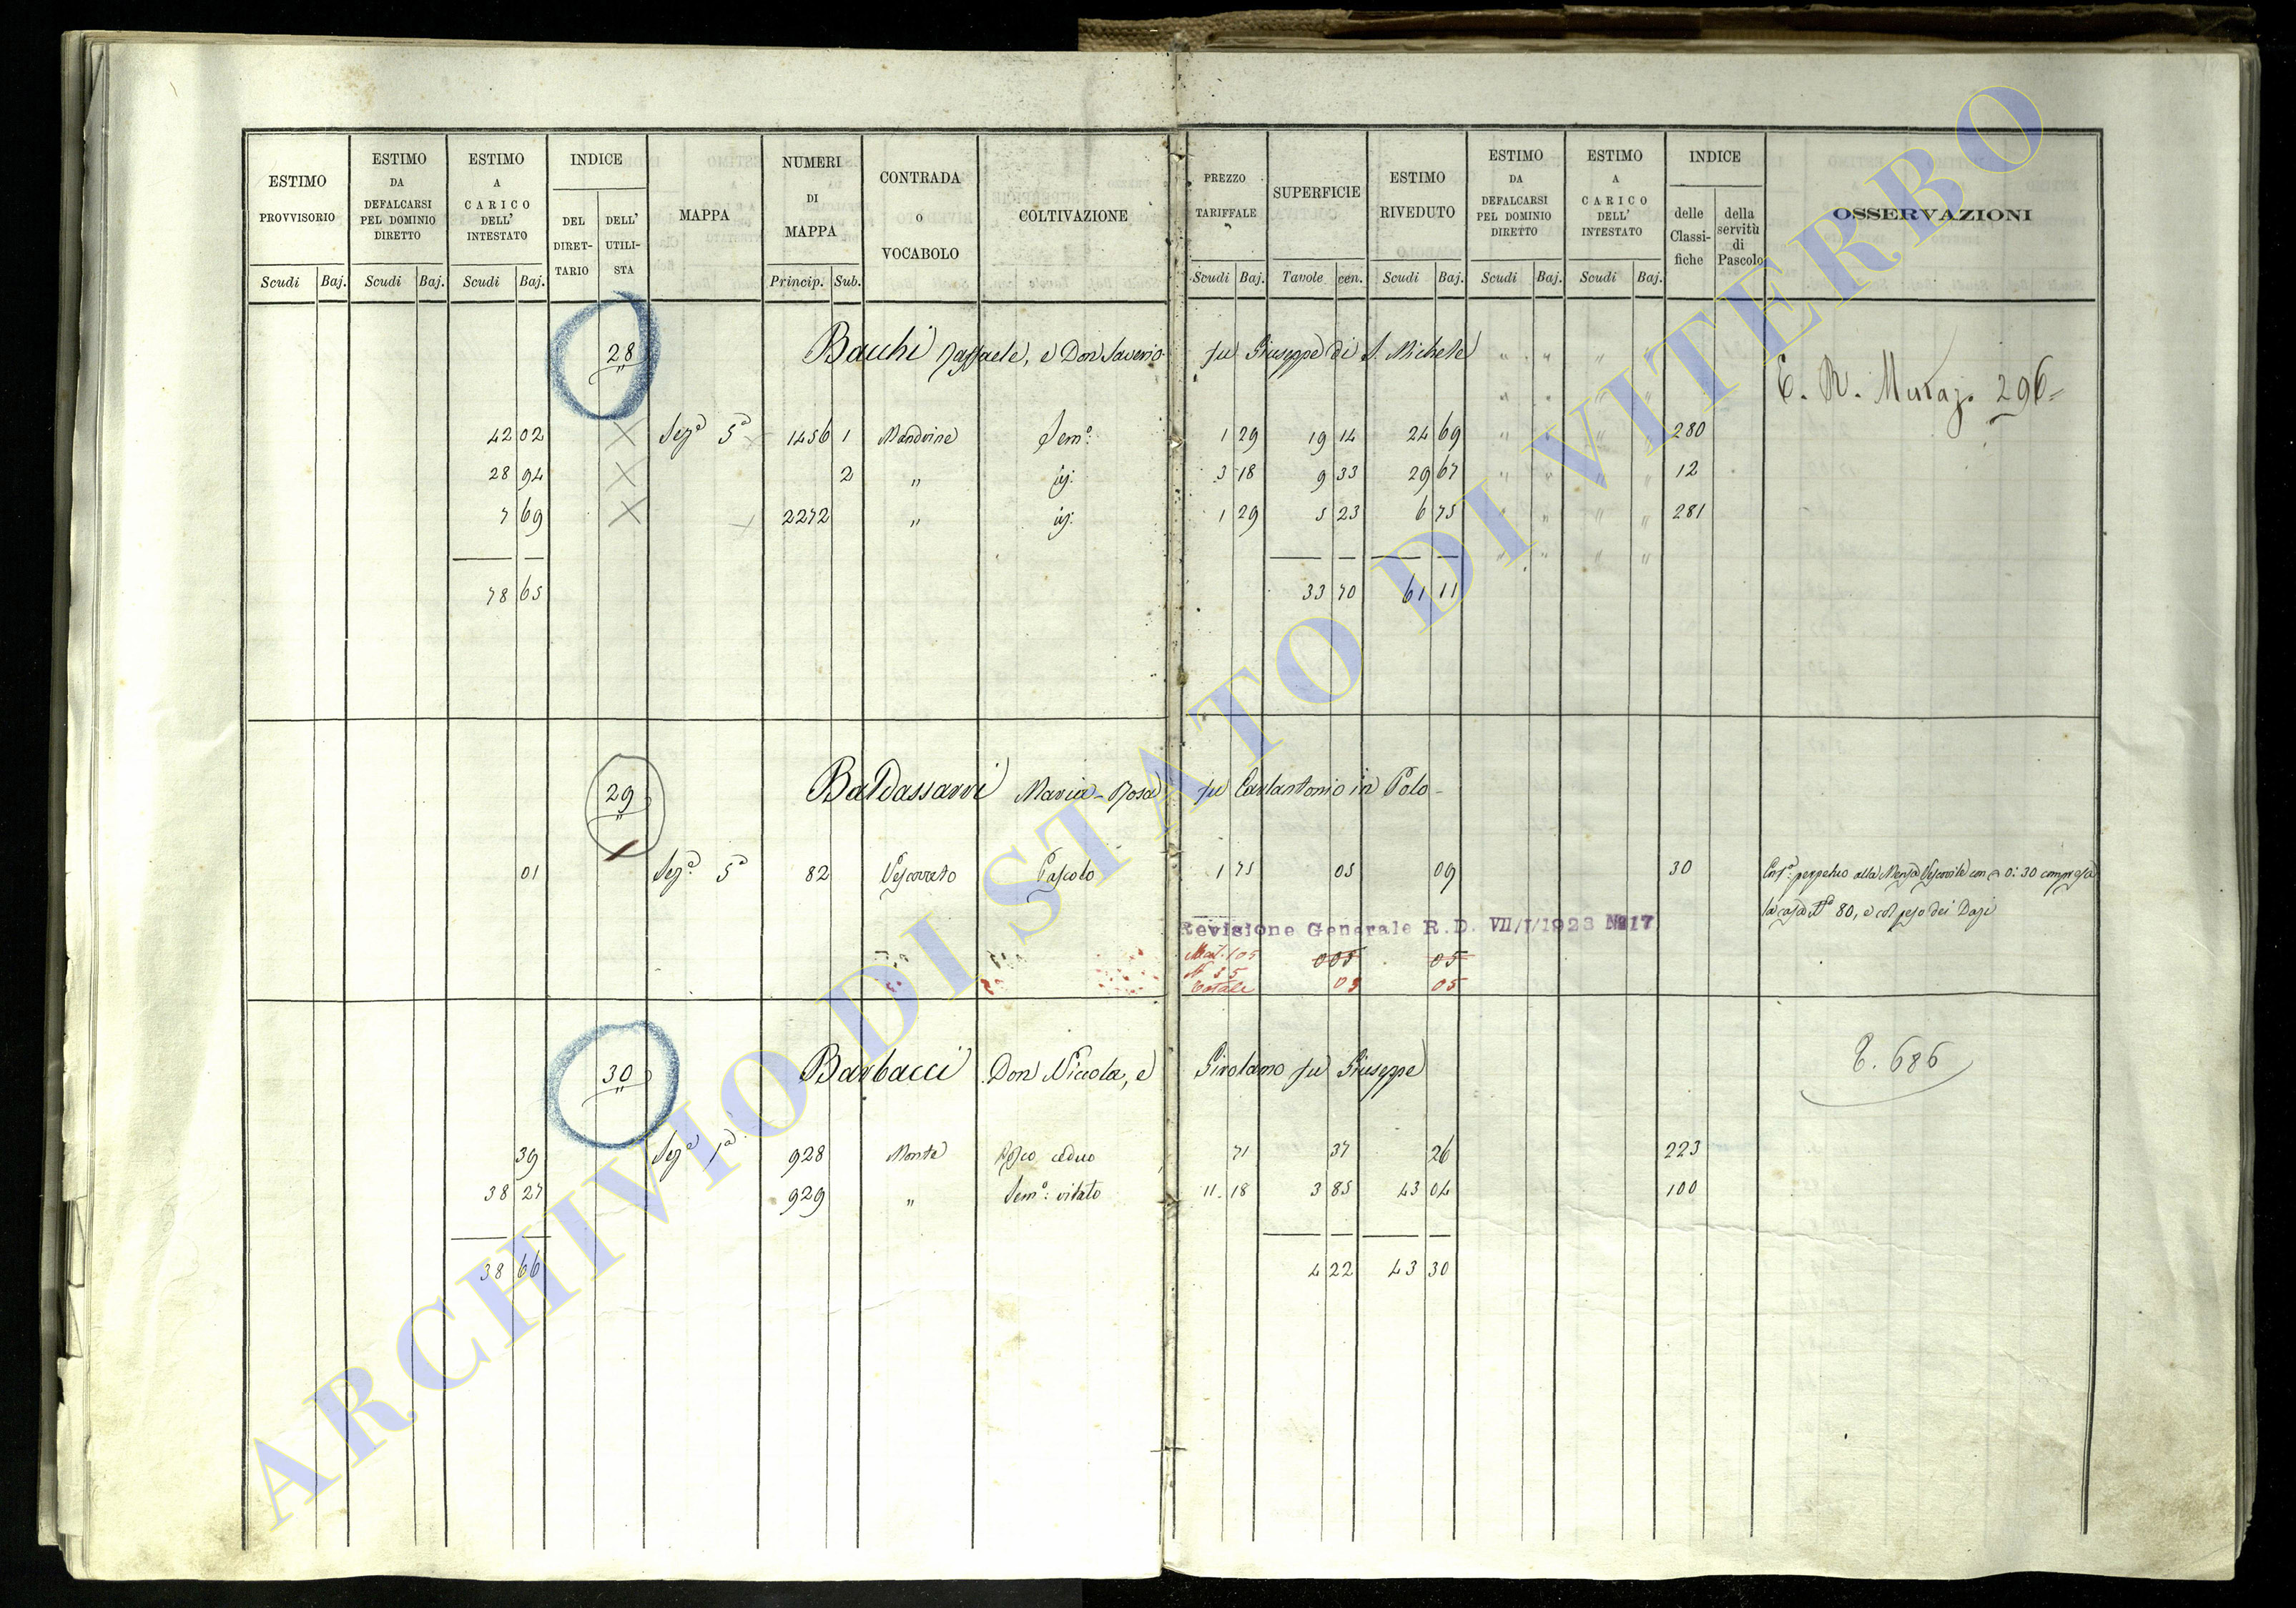 ESTIMO PROVVISORIO
ESTIMO DA DEFALCARSI PEL DOMINIO DIRETTO
ESTIMO A CARICO DELL' INTESTATO
INDICE
DEL DIRET-TARIO
DELL' UTILI-STA
MAPPA
NUMERI DI MAPPA
CONTRADA O VOCABOLO
COLTIVAZIONE
PREZZO TARIFFALE
SUPERFICIE
ESTIMO RIVEDUTO
ESTIMO DA DEFALCARSI PEL DOMINIO DIRETTO
ESTIMO A CARICO DELL' INTESTATO
INDICE
delle Classi-fiche
della servitù di Pascolo
OSSERVAZIONI
Scudi Baj. Scudi Baj. Scudi Baj. Princip. Sub. Scudi Baj. Tavole cen. Scudi Baj. Scudi Baj. Scudi Baj.
28 Bacchi Raffaele, e Don Saverio fu Giuseppe di S. Michele
E. R. 296=
42 02 Sezª 5ª 1456 1 Mandrine Semº: 1 29 19 14 24 69 280
28 94 2 " id: 3 18 9 33 29 67 12
7 69 2272 " id: 1 29 5 23 6 75 281
78 65 33 70 61 11
29 Baldassarri Maria-Rosa fu Carlantonio in Polo
01 Sezª 5ª 82 Vescovato Pascolo 1 75 05 09 30 perpetuo alla Mensa Vescovile con 0:30 compresa
la casa Nº 80, e col peso dei Dazi
Revisione Generale R.D. VII/I/1923 № 17
005 05
Totale 05
30 Barbacci Don Niccola, e Girolamo fu Giuseppe
E. 686
39 Sezª 1ª 928 Monte Bosco ceduo 71 37 26 223
38 27 929 " Semº: vitato 11 18 3 85 43 04 100
38 66 4 22 43 30
ARCHIVIO DI STATO DI VITERBO